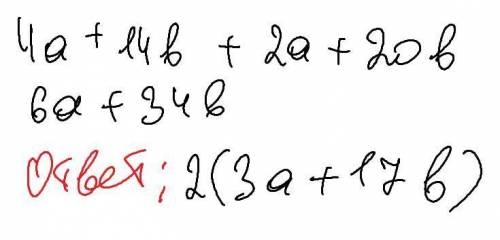 4a + 14b + 2a + 20b
6a + 34b
Ответ; 2(3a + 17b)